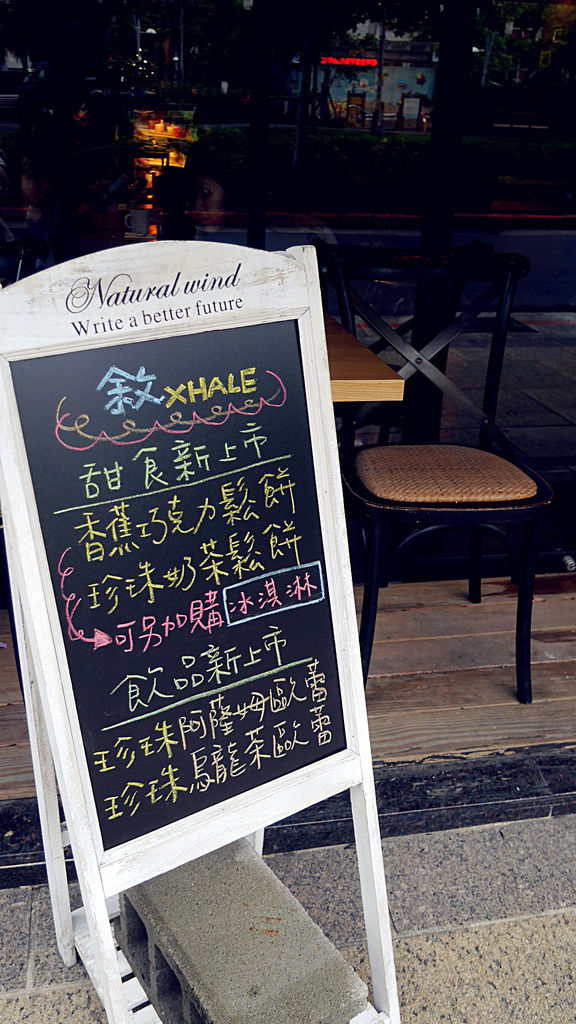 Natural wind
Write a better future
敘 XHALE
甜食新上市
香蕉巧克力鬆餅
珍珠奶茶鬆餅
可另加購冰淇淋
飲品新上市
珍珠阿薩姆歐蕾
珍珠烏龍茶歐蕾